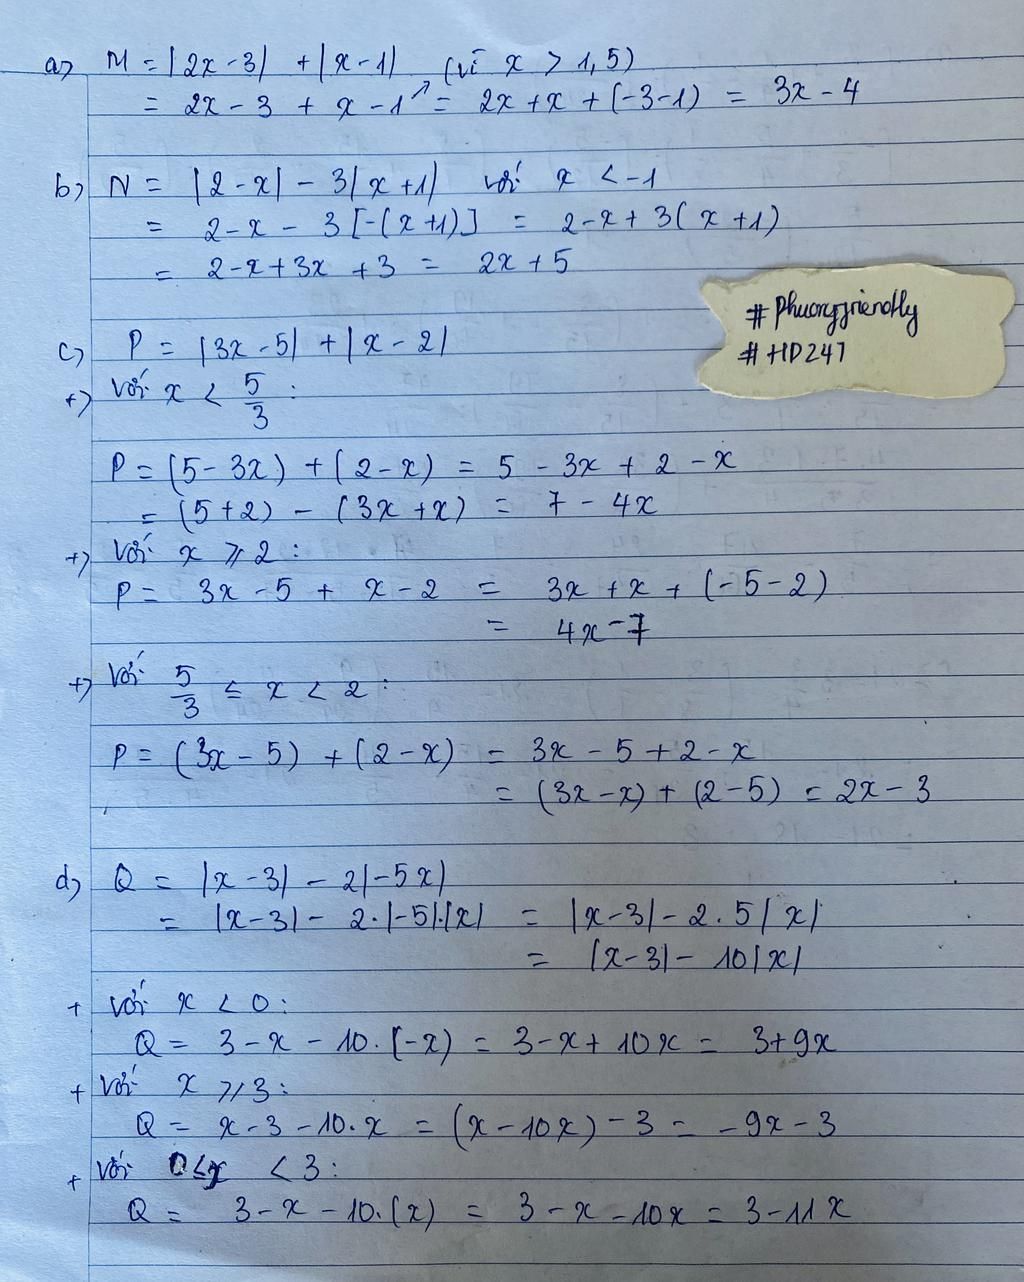 a) M = |2x - 3| + |x - 1| (vì x > 1,5)
= 2x - 3 + x - 1 = 2x + x + (-3 - 1) = 3x - 4
b) N = |2 - x| - 3|x + 1| với x < -1
= 2 - x - 3[-(x + 1)] = 2 - x + 3(x + 1)
= 2 - x + 3x + 3 = 2x + 5
#Phuongfriendly
#HD247
c) P = |3x - 5| + |x - 2|
+) Với x < 5/3 :
P = (5 - 3x) + (2 - x) = 5 - 3x + 2 - x
= (5 + 2) - (3x + x) = 7 - 4x
+) Với x ⩾ 2 :
P = 3x - 5 + x - 2 = 3x + x + (-5 - 2)
= 4x - 7
+) Với 5/3 ≤ x < 2 :
P = (3x - 5) + (2 - x) = 3x - 5 + 2 - x
= (3x - x) + (2 - 5) = 2x - 3
d) Q = |x - 3| - 2|-5x|
= |x - 3| - 2.|-5|.|x| = |x - 3| - 2.5|x|
= |x - 3| - 10|x|
+ Với x < 0 :
Q = 3 - x - 10.(-x) = 3 - x + 10x = 3 + 9x
+ Với x ⩾ 3 :
Q = x - 3 - 10.x = (x - 10x) - 3 = -9x - 3
+ Với 0 ≤ x < 3 :
Q = 3 - x - 10.(x) = 3 - x - 10x = 3 - 11x